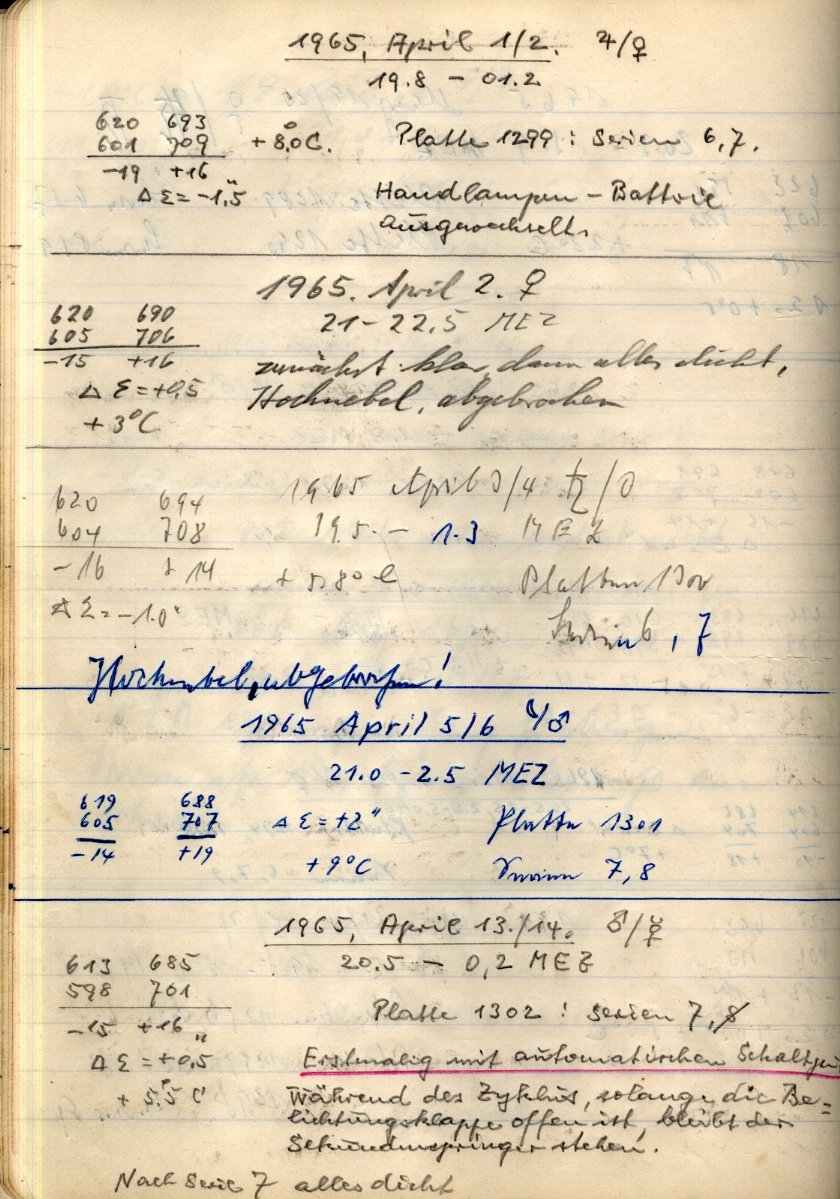 1965, April 1/2. ♃/♀
19.8 – 01.2
620 693
601 709 +8,0°C. Platte 1299 : Serien 6,7.
-19 +16
Δ Ɛ = -1",5 Handlampen – Battrie
ausgewechselt.
1965. April 2. ♀
620 690 21 – 22.5 MEZ
605 706
-15 +16 zunächst klar, dann alles dicht,
Δ Ɛ = +0,5 Hochnebel, abgebrochen
+ 3°C
1965 April 3/4 ♄/☉
620 694
604 708 19.5 – 1.3 MEZ
-16 + 14 Platten 1300
Δ Ɛ = -1.0" Serien 6, 7
Hochnebel, abgebrochen!
1965 April 5/6 ☾/♂
21.0 – 2.5 MEZ
619 688
605 707 Δ Ɛ = +2" Platte 1301
-14 +19 +9°C Serien 7,8
1965, April 13./14. ♂/☿
613 685 20.5 – 0,2 MEZ
598 701
-15 +16 Platte 1302 : Serien 7,8
Δ Ɛ = +0",5 Erstmalig mit automatischen
+ 5.5°C Während des Zyklus, solange die Be=
lichtungsklappe offen ist, bleibt der
Sekundenspringer stehen.
Nach Serie 7 alles dicht